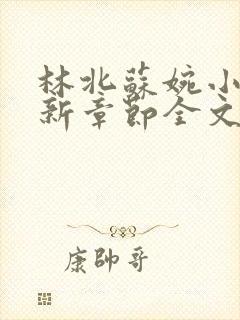 林北蘇婉小
新章節全文
康帥哥